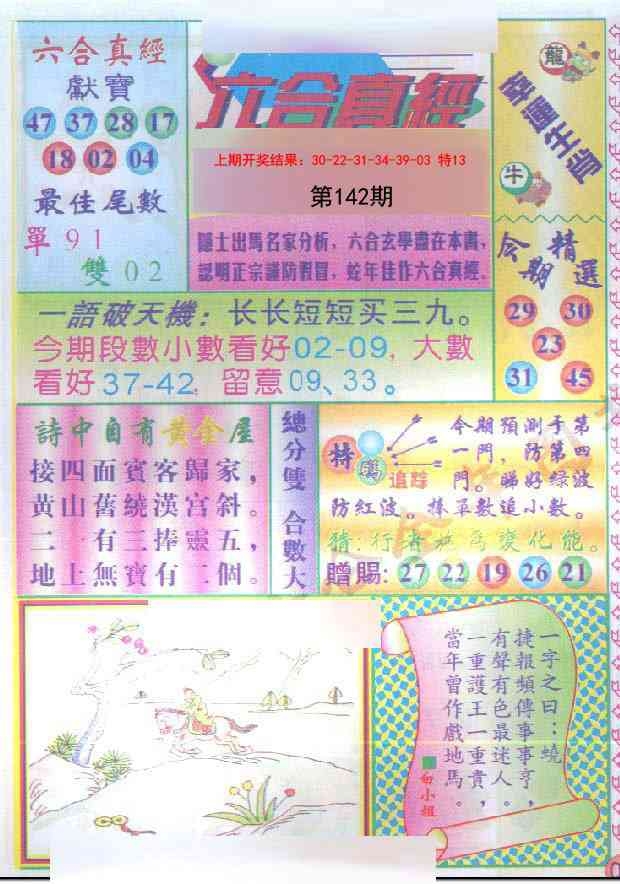 六合真經
獻寶
47 37 28 17
18 02 04
最佳尾數
單91
雙02
六合真經
上期开奖结果：30-22-31-34-39-03 特13
第142期
隱士出馬名家分析，六合玄學盡在本書，
認明正宗謹防假冒，蛇年佳作六合真經。
幸運生肖
龍
牛
今期精選
29 30
23
31 45
一語破天機：长长短短买三九。
今期段數小數看好02-09，大數
看好37-42，留意09、33。
詩中自有黃金屋
接四面賓客歸家，
黃山舊繞漢宮斜。
二一有三捧靈五，
地上無寶有二個。
總分雙 合數大
特碼
追踪
今期預測于第
一門，防第四
門。睇好绿波
防紅波。捧單數追小數。
猜：行者
為變化能。
贈賜：27 22 19 26 21
一字之曰：蟯
捷報頻傳事事亨，
有聲有色最迷人。
一重護王一重貴，
當年曾作戲地馬。
白小姐